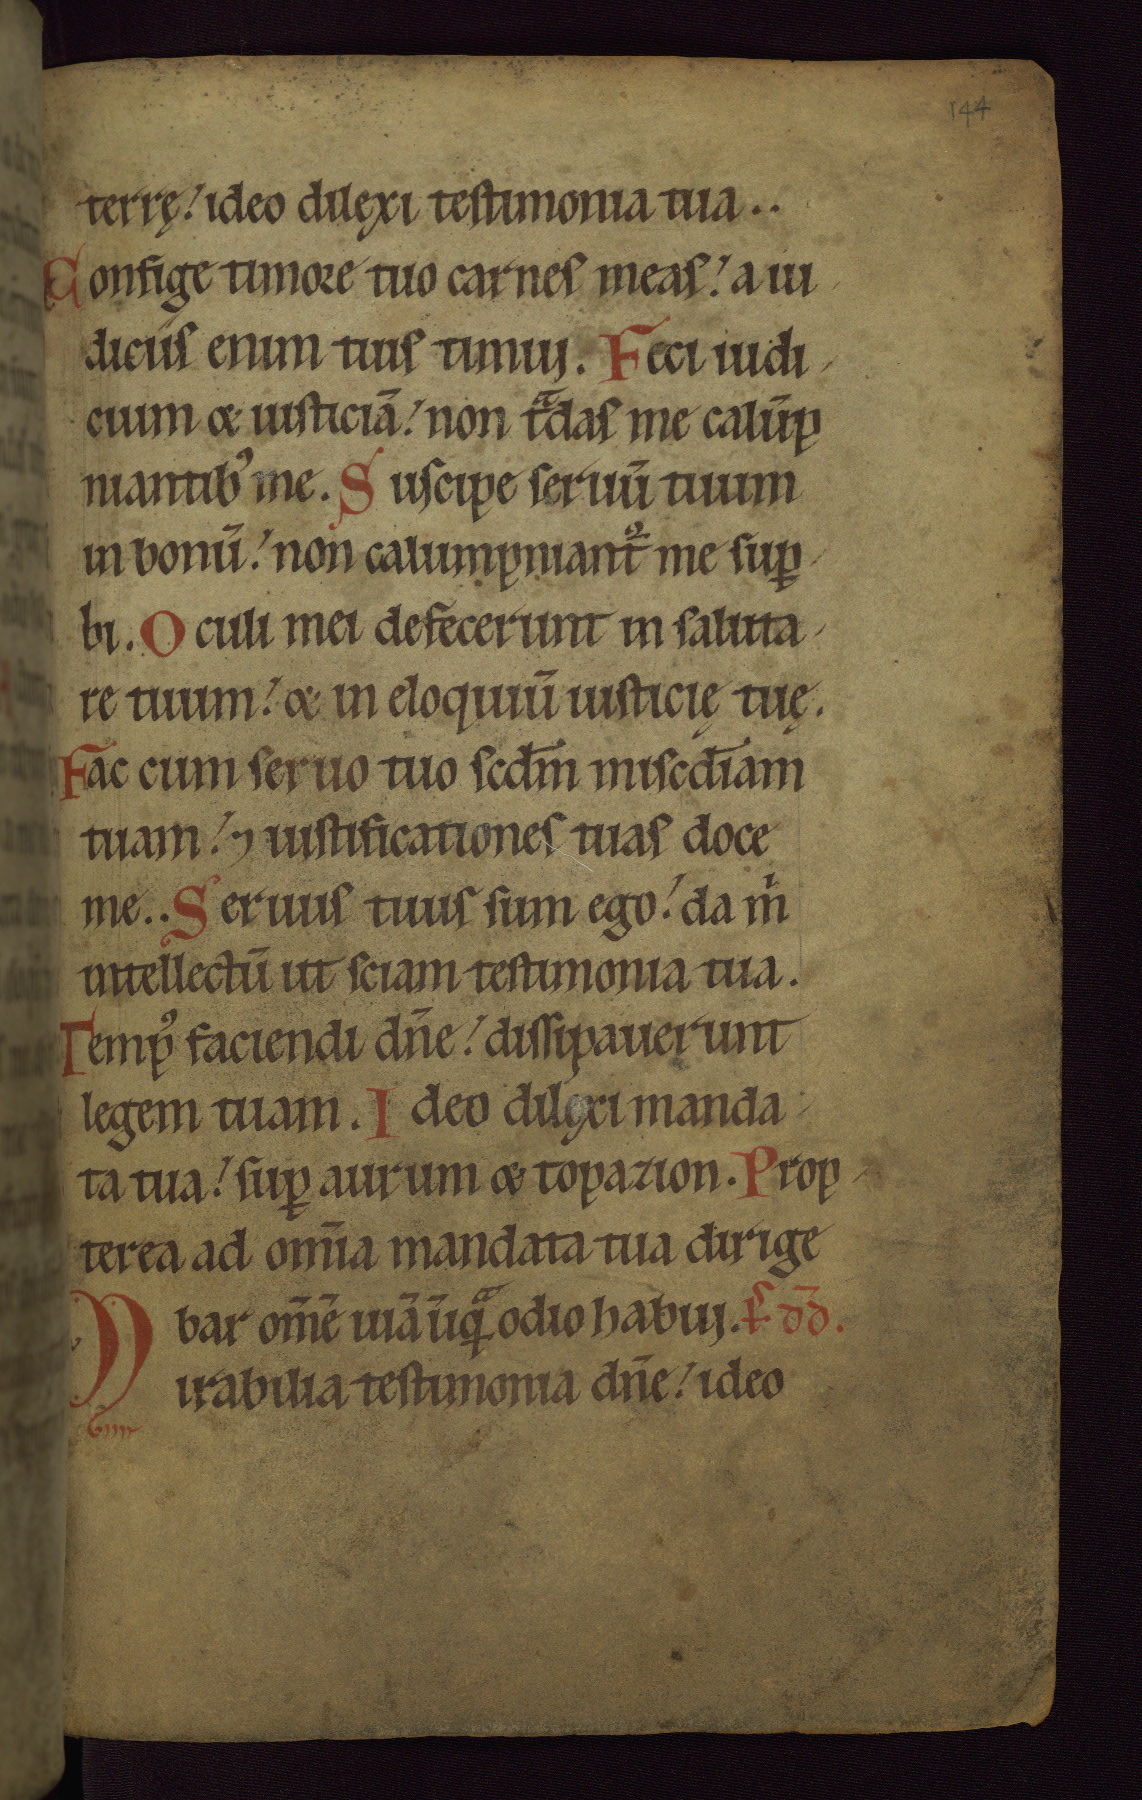 144
terrę! ideo dilęxi testimonia tua..
Confige timore tuo carnes meas! a iu
diciis enim tuis timuj. Feci iudi
cium & iusticiā! non tͣdas me calūp
niantibꝰ me. Suscipe seruū tuum
in bonū! non calumpniantᷣ me suꝑ
bi. Oculi mei defecerunt in saluta
re tuum! & in eloquiū iusticię tuę.
Fac cum seruo tuo scdm̄ miscd̄iam
tuam! ⁊ iustificationes tuas doce
me.. Seruus tuus sum ego! da mͥ
intellectū ut sciam testimonia tua.
Tempꝰ faciendi dn̄e! dissipauerunt
legem tuam. Ideo dilęxi manda
ta tua! suꝑ aurum & topazion. Prop
terea ad om̄ia mandata tua dirige
bar om̄ē uiā ūiqͣ odio habuj. ꝶ dd̄.
Mirabilia testimonia dn̄e! ideo